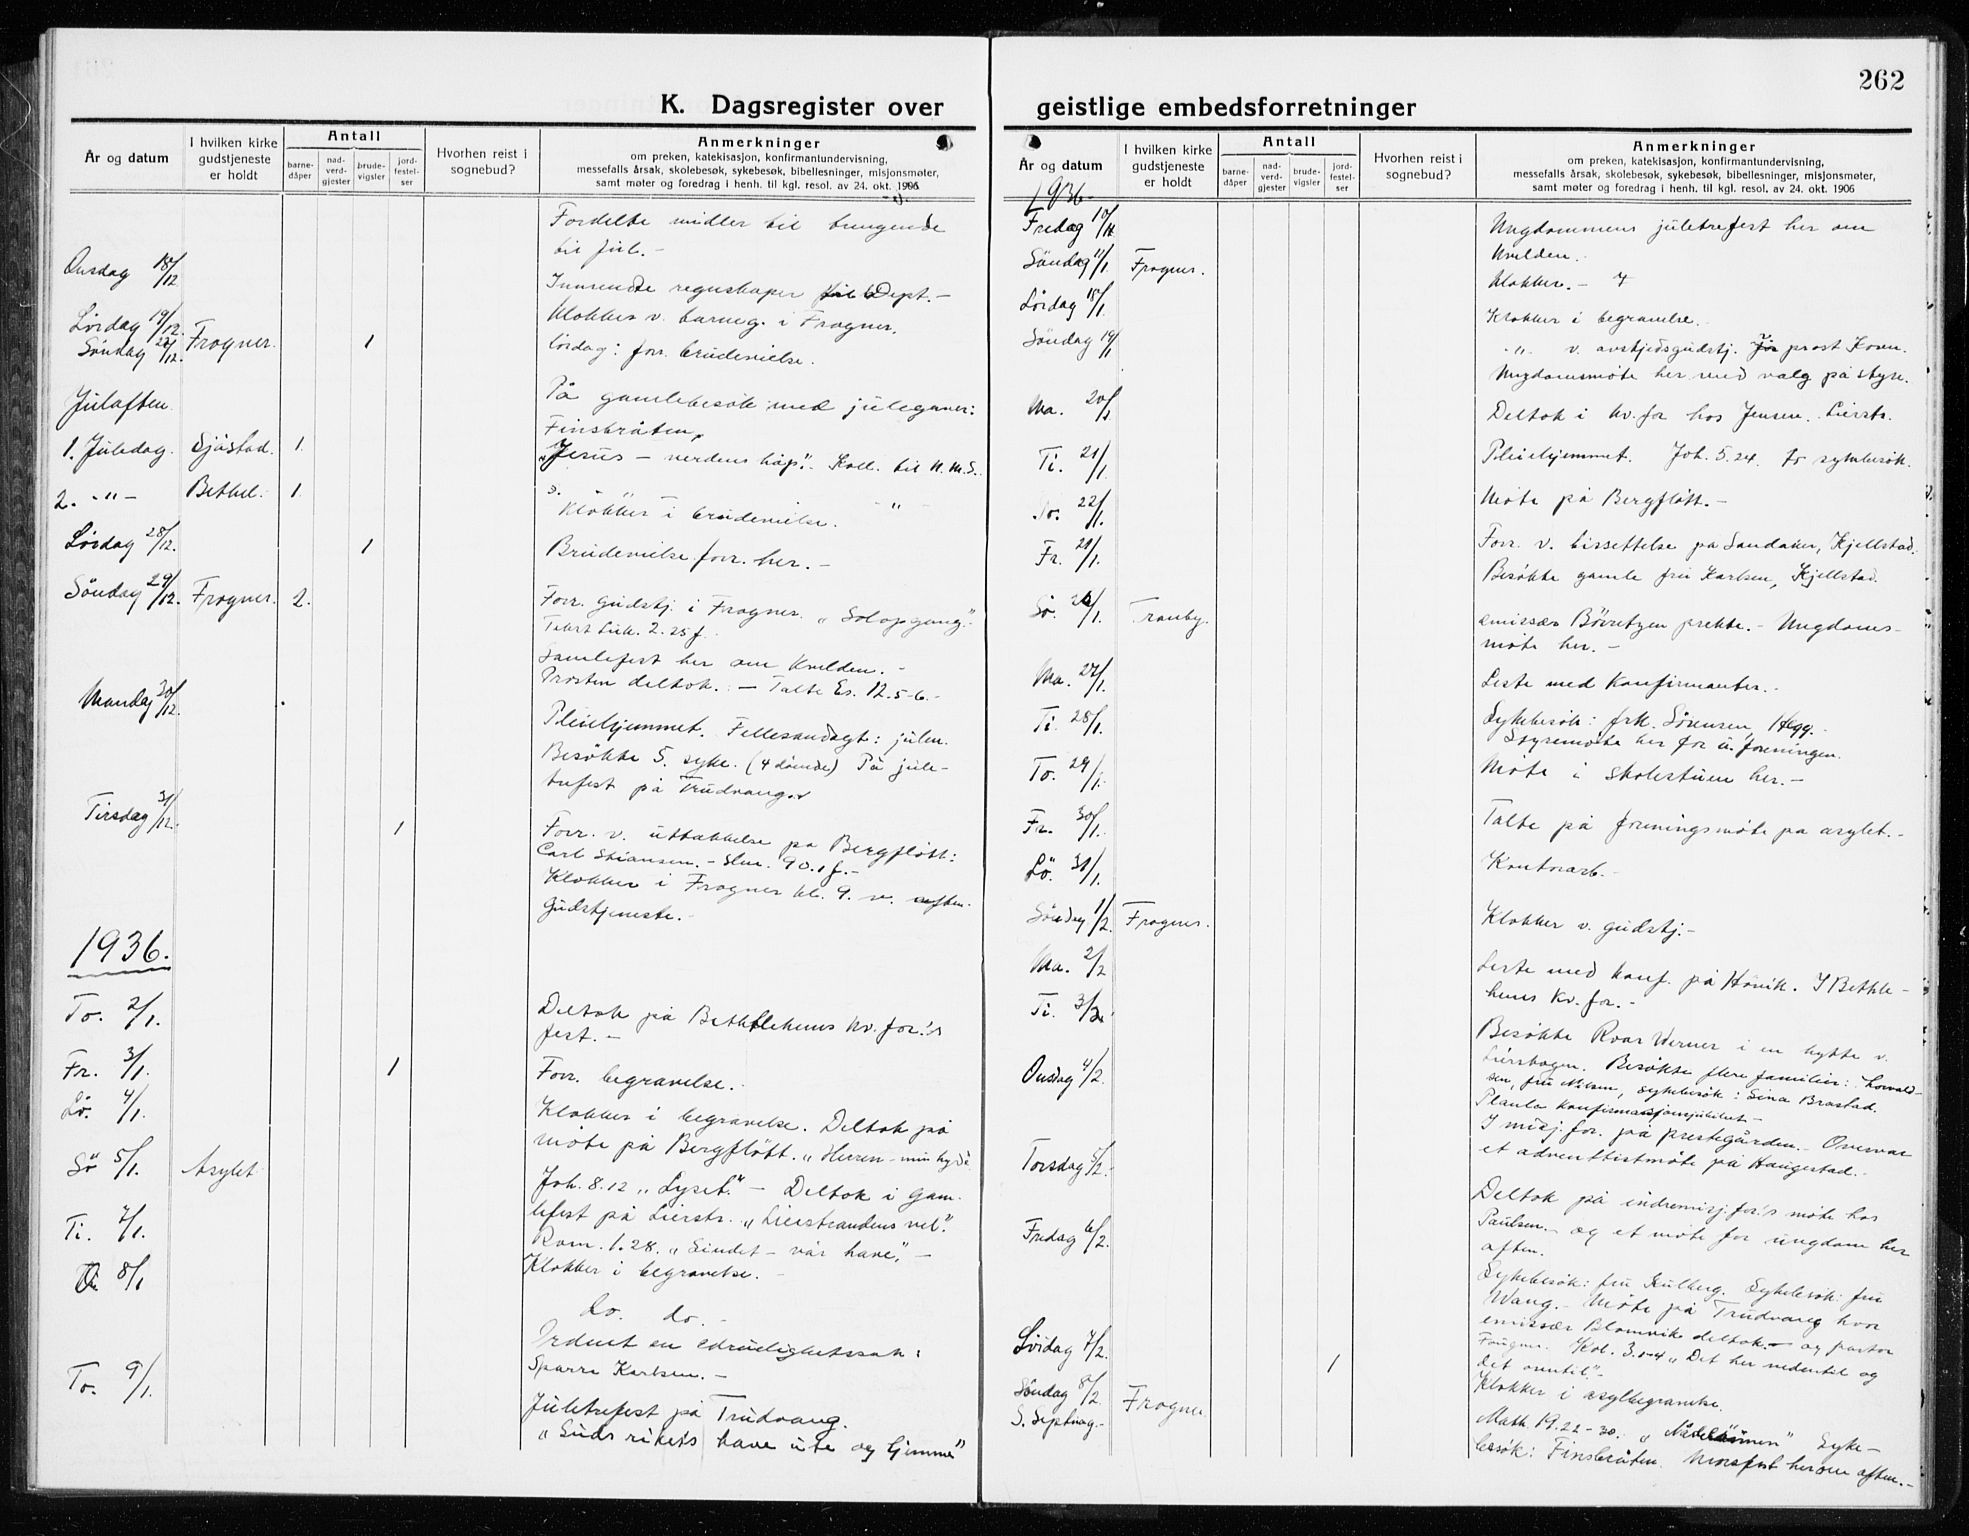 262
K. Dagsregister over geistlige embedsforretninger
År og datum
I hvilken kirke gudstjeneste er holdt
Antall
barne-dåper
nad-verd-gjester
brude-vigsler
jord-festel-ser
Hvorhen reist i sognebud?
Anmerkninger
om preken, katekisasjon, konfirmantundervisning,
messefalls årsak, skolebesøk, sykebesøk, bibellesninger, misjonsmøter,
samt møter og foredrag i henh. til kgl. resol. av 24. okt. 1906
Fordelte midler til trengende
til jul. -
Onsdag 18/12
Innsendte regnskaper til Dept. -
Lördag 19/12.
Klokker v. barneg. i Frogner.
Söndag 22/12. Frogner. 1
lördag: forr. brudevielse.
Julaften.
På gamlebesök med julegaver:
Finsbråten.
1. Juledag. Sjåstad. 1.
"Jesus - verdens håp". Koll. til N.M.S.
2. -"- Bethel. 1.
s. - " -
Lördag 28/12. 1
Klokker i brudevielse.
Brudevielse forr. her. -
Söndag 29/12. Frogner. 2.
Forr. gudstj. i Frogner. "Solopgang".
Tekst Luk. 2.25 f.
Samlefest her om kvelden. -
Mandag 30/12.
Prosten deltok. - Talte Es. 12.5-6. -
Pleiehjemmet. Fellesandagt: julen.
Besökte 5. syke. (4 döende) På jule-
trefest på Trudvang.
Tirsdag 31/12. 1
Forr. v. uttakkelse på Bergflött:
Carl Stiansen. - Slm. 90.1 f. -
Klokker i Frogner kl. 9. v. aften-
gudstjeneste. -
1936.
To. 2/1.
Deltok på Bethlehems kv.for.'s
fest. -
Fr. 3/1. 1
Forr. begravelse. -
Lö. 4/1.
Klokker i begravelse. Deltok på
möte på Bergflött. "Herren - min hyrde
Sö 5/1. Asylet
Joh. 8.12 "Lyset." - Deltok i gam-
lefest på Lierstr. "Lierstrandens vel".
Ti. 7/1.
Rom. 1.28. "Sindet - vår have", -
8/1
Klokker i begravelse. -
do. do. -
Ordnet en edruelighetssak:
To. 9/1.
Sparre Karlsen. -
Juletrefest på Trudvang.
"Guds rikets have ute og hjemme"
År og datum
I hvilken kirke gudstjeneste er holdt
Antall
barne-dåper
nad-verd-gjester
brude-vigsler
jord-festel-ser
Hvorhen reist i sognebud?
Anmerkninger
om preken, katekisasjon, konfirmantundervisning,
messefalls årsak, skolebesøk, sykebesøk, bibellesninger, misjonsmøter,
samt møter og foredrag i henh. til kgl. resol. av 24. okt. 1906
1936.
Fredag 10/1
Ungdommens juletrefest her om
kvelden.
Söndag 11/1. Frogner.
Klokker. -
Lördag 18/1.
Klokker i begravelse.
Söndag 19/1
-"- v. avskjedsgudstj. for prost Koren.
Ungdomsmöte her med valg på styre.
Ma. 20/1
Deltok i kv.for hos Jensen. Lierstr.
Ti. 21/1.
Pleiehjemmet. Joh. 5.24. to sykebesök.
To. 22/1.
Möte på Bergflött. -
Fr. 21/1.
Forr. v. bissettelse på Sandaker, Kjellstad.
Besökte gamle fru Karlsen, Kjellstad.
Sö. 26/1. Tranby.
emissær Bövretzen prekte. - Ungdoms-
möte her. -
Ma. 27/1.
Leste med konfirmanter. -
Ti. 28/1.
Sykebesök: frk. Sörensen, Hegg. -
Styremöte her for u. foreningen.
To. 29/1.
Möte i skolestuen her. -
Fr. 30/1.
Talte på foreningsmöte på asylet. -
Lö. 31/1.
Kontorarb. -
Söndag 1/2. Frogner.
Klokker v. gudstj. -
Ma. 2/2
Leste med konf. på Hörvik. I Bethle-
hems kv.for. -
Ti. 3/2.
Besökte Roar Werner i en hytte v.
Onsdag 4/2.
Lierskogen. Besökte flere familier: Torvald-
sen, fru Nilsen, sykebesök: Sina Brastad.
Planla konfirmasjonsjubileet -
I misj.for. på prestegården. - Overvar
Torsdag 5/2.
et adventistmöte på Haugestad. -
Deltok på indremisj.for.'s möte hos
Fredag 6/2.
Paulsen. - og et möte for ungdom her
aften.
Sykebesök: fru Kulberg. Sykebesök: fru
Wang. - Möte på Trudvang hvor
Lördag 7/2. 1
emissær Blomvik deltok. - og pastor
Fougner. Kol. 3.1-4 "Det her nedentil og
det oventil". -
Söndag 8/2 Frogner.
Klokker i asylbegravelse.
S. Septuag. -
Math. 19.22-30. "Nådelönnen" Syke-
besök: Finsbråten. Morsfest her om aften. -